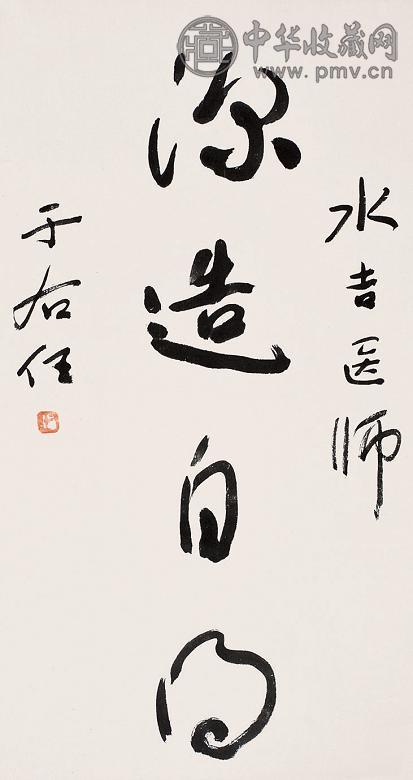 中华收藏网
www.pmv.cn
水吉医师
深造自得
于右任